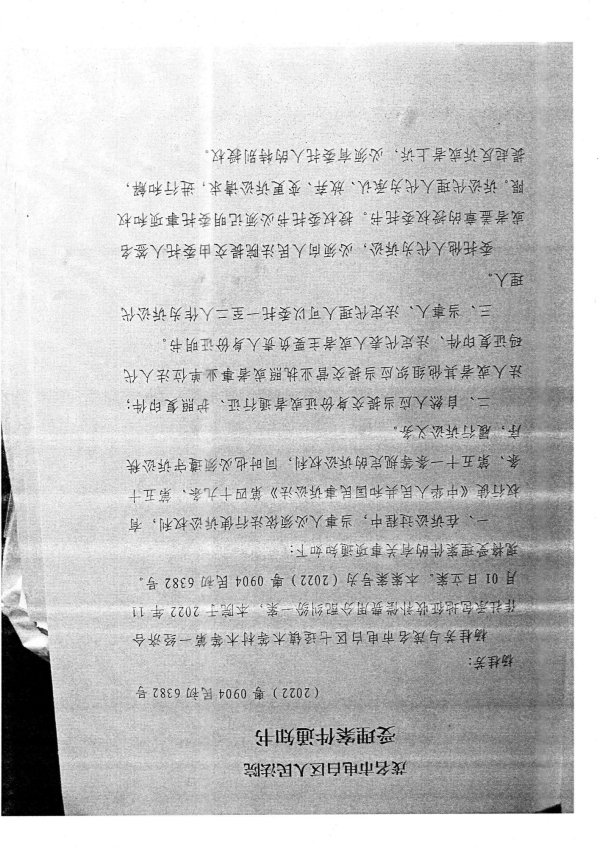 茂名市电白区人民法院
受理案件通知书
（2022）粤 0904 民初 6382 号
杨桂芳：
杨桂芳与茂名市电白区七迳镇木等村木等第一经济合
作社承包地征收补偿费用分配纠纷一案，本院于 2022 年 11
月 01 日立案。本案案号为（2022）粤 0904 民初 6382 号。
现将受理案件的有关事项通知如下：
一、在诉讼过程中，当事人必须依法行使诉讼权利，有
权行使《中华人民共和国民事诉讼法》第四十九条、第五十
条、第五十一条等规定的诉讼权利，同时也必须遵守诉讼秩
序，履行诉讼义务。
二、自然人应当提交身份证或者通行证、护照复印件；
法人或者其他组织应当提交营业执照或者事业单位法人代
码证复印件、法定代表人或者主要负责人身份证明书。
三、当事人、法定代理人可以委托一至二人作为诉讼代
理人。
委托他人代为诉讼，必须向人民法院提交由委托人签名
或者盖章的授权委托书。授权委托书必须记明委托事项和权
限。诉讼代理人代为承认、放弃、变更诉讼请求，进行和解，
提起反诉或者上诉，必须有委托人的特别授权。